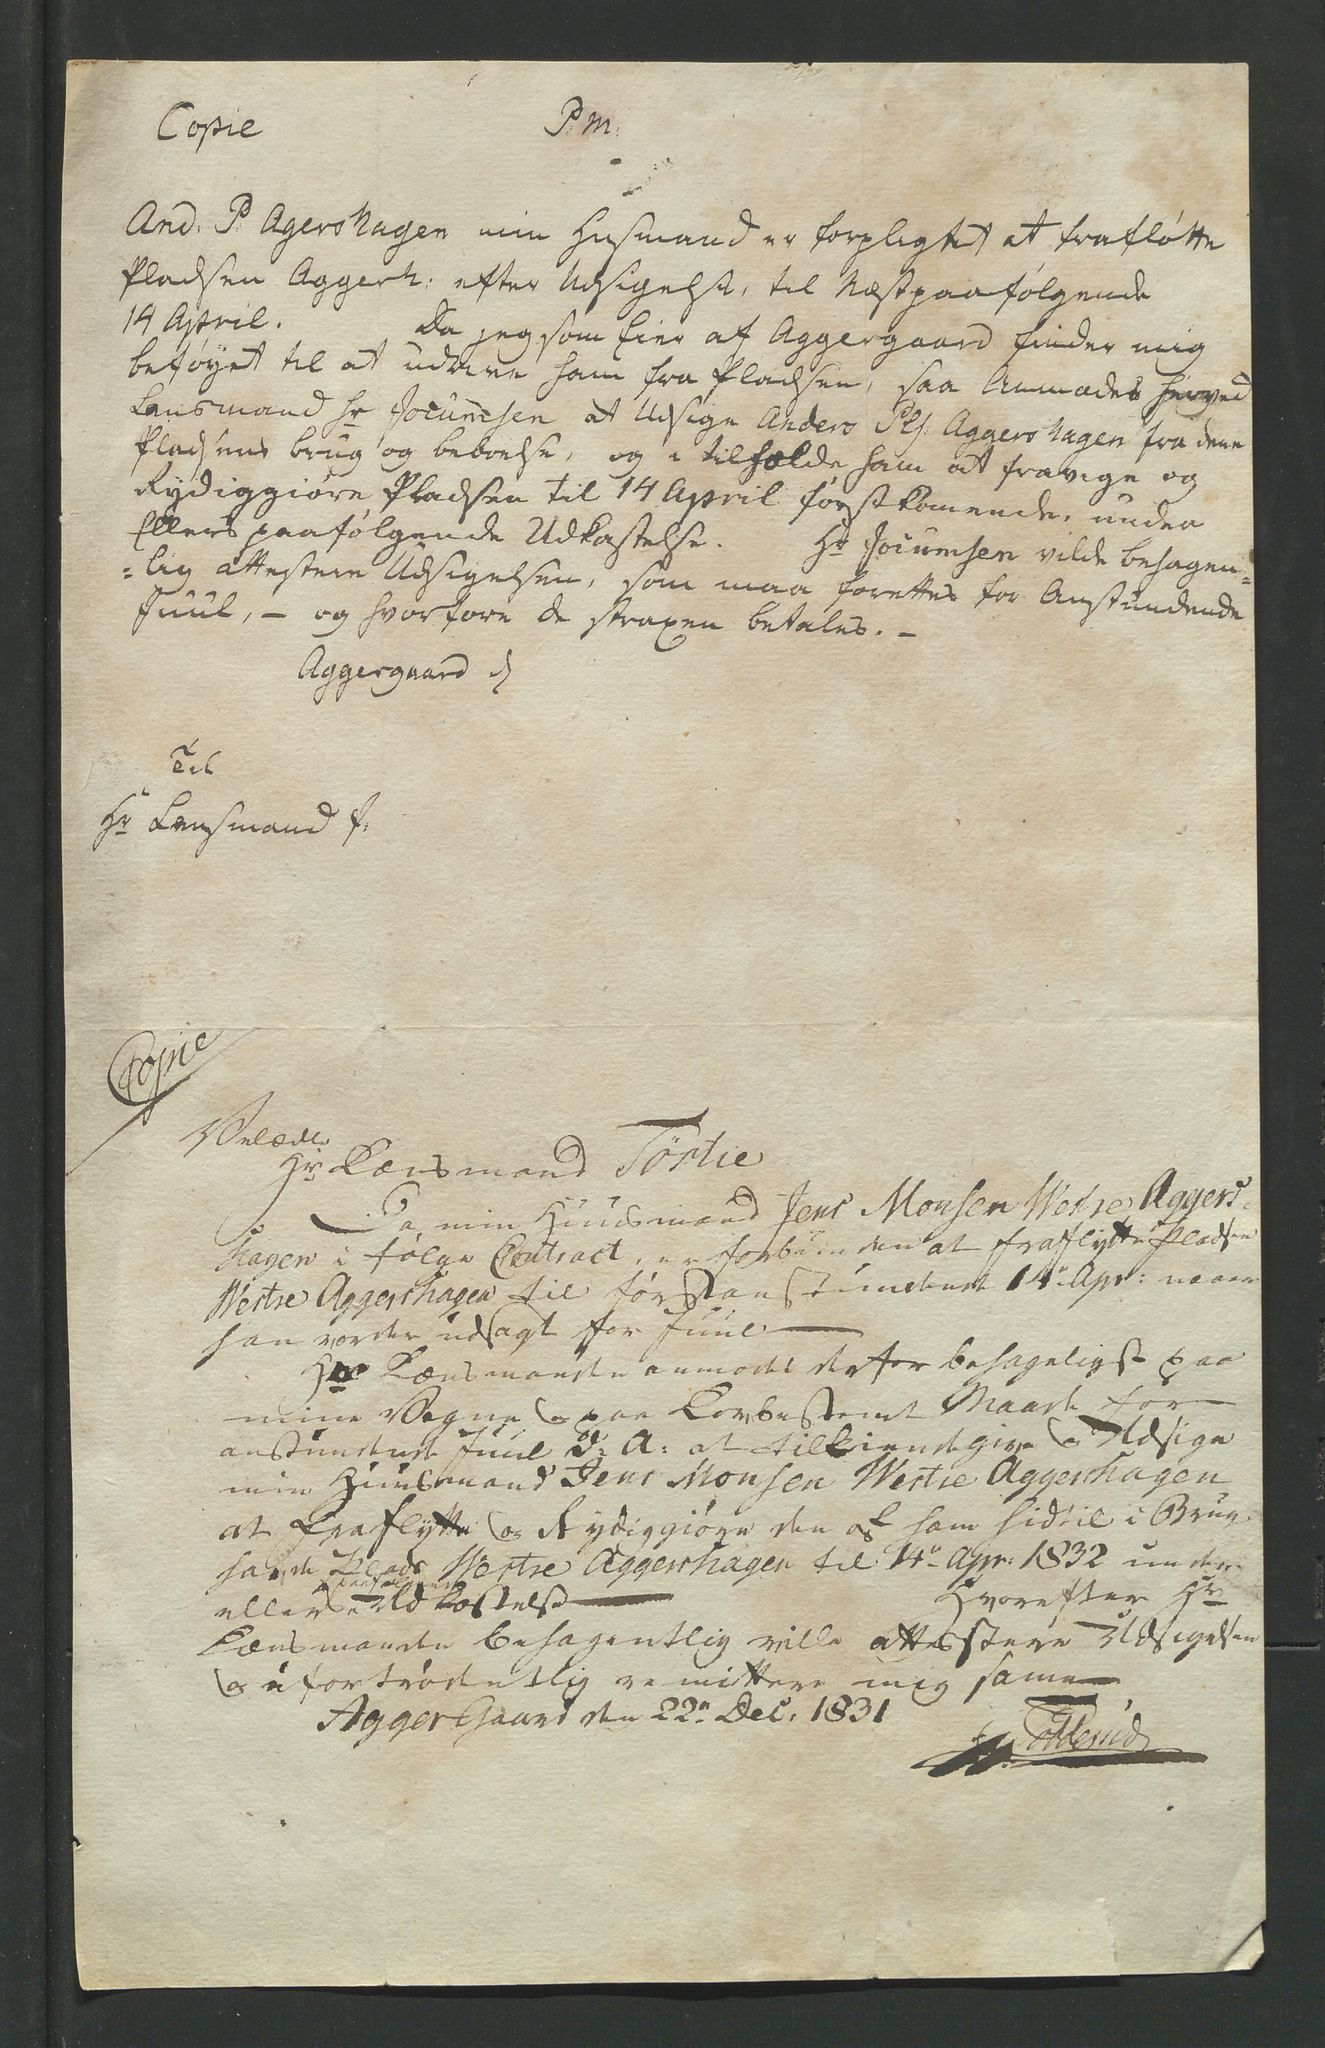 Copie P. m.
And. P. Agershagen min Husmand er forpligtet at frafløtte
Pladsen Aggerh: efter Udsigelse, til Næstpaafølgende
14 April. Da jeg som Eier af Aggergaard finder mig
beføyet til at udvise ham fra Pladsen, saa Anmodes herved
Lensmand Hr Jocumsen at Udsige Anders Ped: Aggershagen fra dene
Pladsens brug og beboelse, og i tilfælde ham at fravige og
Rydiggiøre Pladsen til 14 April førstkomende, under
Ellers paafølgende Udkastelse. Hr Jocumsen vilde behagen=
=lig attestere Udsigelsen, som maa forettes for Anstundende
Juul, – og hvorfore de straxen betales. –
Aggergaard d
Til
Hr Lensmand J.
Copie
Velædle
Hr Lænsmand Tørtie
Da min Huusmand Jens Monsen Westre Aggers
hagen i følge Contract, er forbunden at fraflytte Pladsen
Westre Aggershagen til førstanstundende 14de Apr: naar
han vorder udsagt for Juul
Hr Lænsmanden anmodes derfor behageligst paa
mine Vegne og paa Lovbestemt Maade for
anstundende Juul d: A: at tilkiendegive og Udsige
min Huusmand Jens Monsen Westre Aggershagen
at fraflytte og Rydiggiøre den af ham hidtil i Brug
havde Plads Westre Aggershagen til 14de Apr: 1832 under
ellers paafølgende Udkastelse Hvorefter Hr
Lænsmanden behagentlig ville attestere Udsigelsen
og ufortrødentlig remittere mig same
Agger Gaard den 22de Dec: 1831